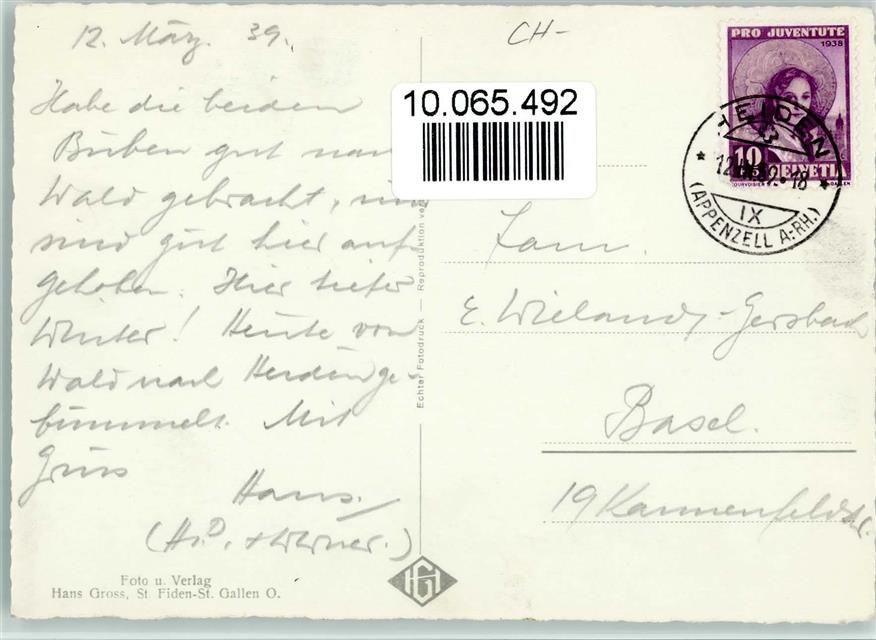 12. März. 39.
Habe die beiden
Buben gut nach
Wald gebracht, und
sind gut hier auf-
gehoben. Hier tiefer
Winter! Heute von
Wald nach Heiden ge-
bummelt. Mit
Gruss
Hans.
(H. D. + Werner.)
Foto u. Verlag
Hans Gross, St. Fiden-St. Gallen O.
Echter Fotodruck — Reproduktion ver
HG
CH-
10.065.492
PRO JUVENTUTE
1938
10
HELVETIA
COURVOISIER S.A.
HEIDEN
12. III. 39.-18
IX
(APPENZELL A.-RH.)
Fam.
E. Wieland-Gersbach
Basel.
19 Kannenfeldstr.